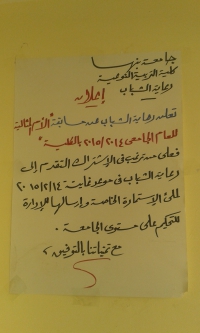 جامعة بنها
كلية التربية النوعية
رعاية الشباب
إعلان
تعلن رعاية الشباب عن مسابقة "الأم المثالية"
للعام الجامعى ٢٠١٤/٢٠١٥ بالكلية"
فعلى من ترغب فى الاشتراك التقدم إلى
رعاية الشباب فى موعد غايته ٢٠١٥/٢/١٤
لملئ الاستمارة الخاصة وإرسالها للإدارة
للتحكيم على مستوى الجامعة .
مع تمنياتنا بالتوفيق ،